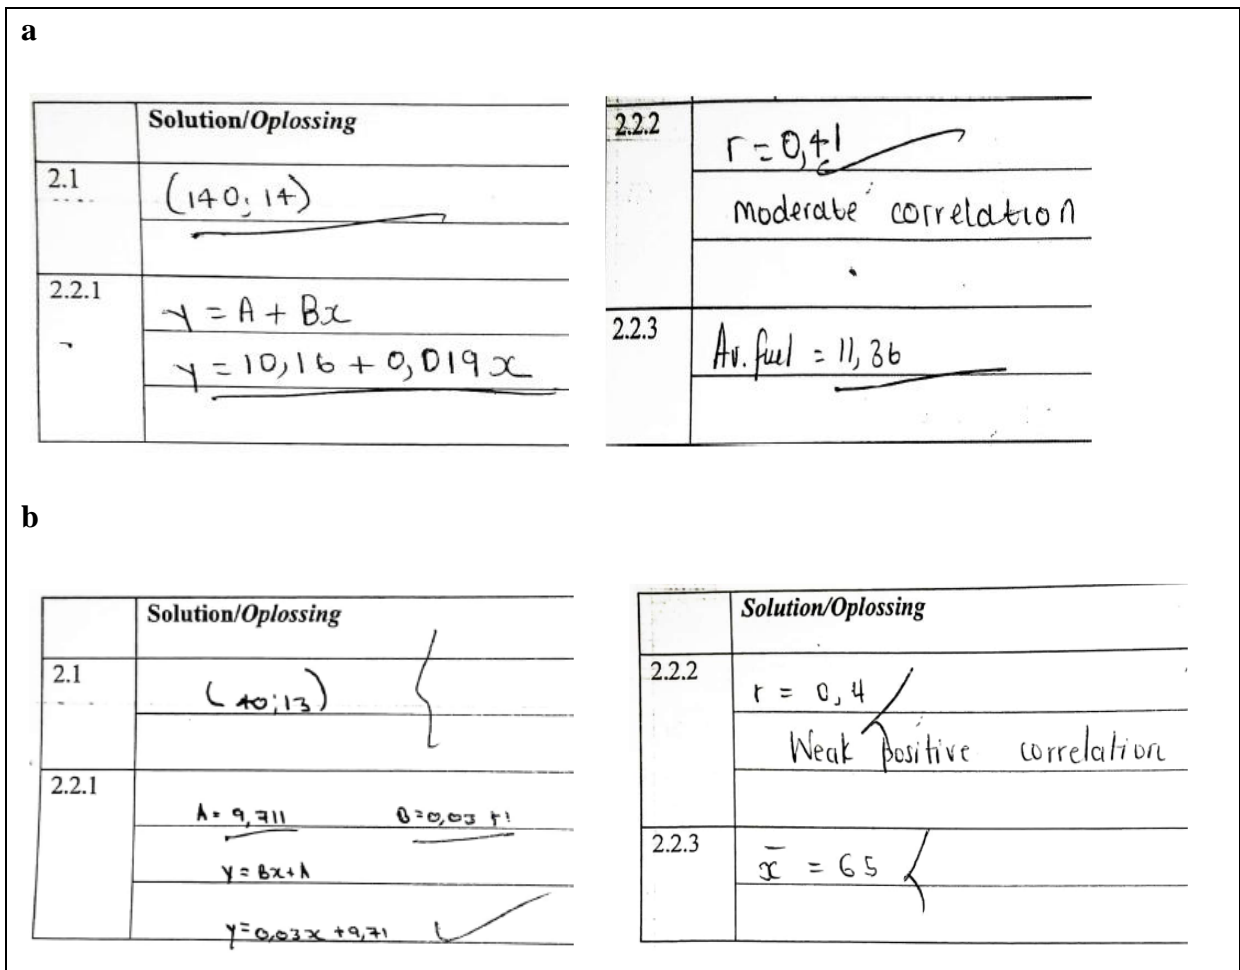 a
Solution/Oplossing
2.1
(140; 14)
2.2.1
y = A + Bx
y = 10,16 + 0,019x
2.2.2
r = 0,41
Moderate correlation
2.2.3
Av. fuel = 11,36
b
Solution/Oplossing
2.1
(40;13)
2.2.1
A = 9,711 B = 0,03
y = Bx + A
y = 0,03x + 9,71
Solution/Oplossing
2.2.2
r = 0,4
Weak positive correlation
2.2.3
x̄ = 65